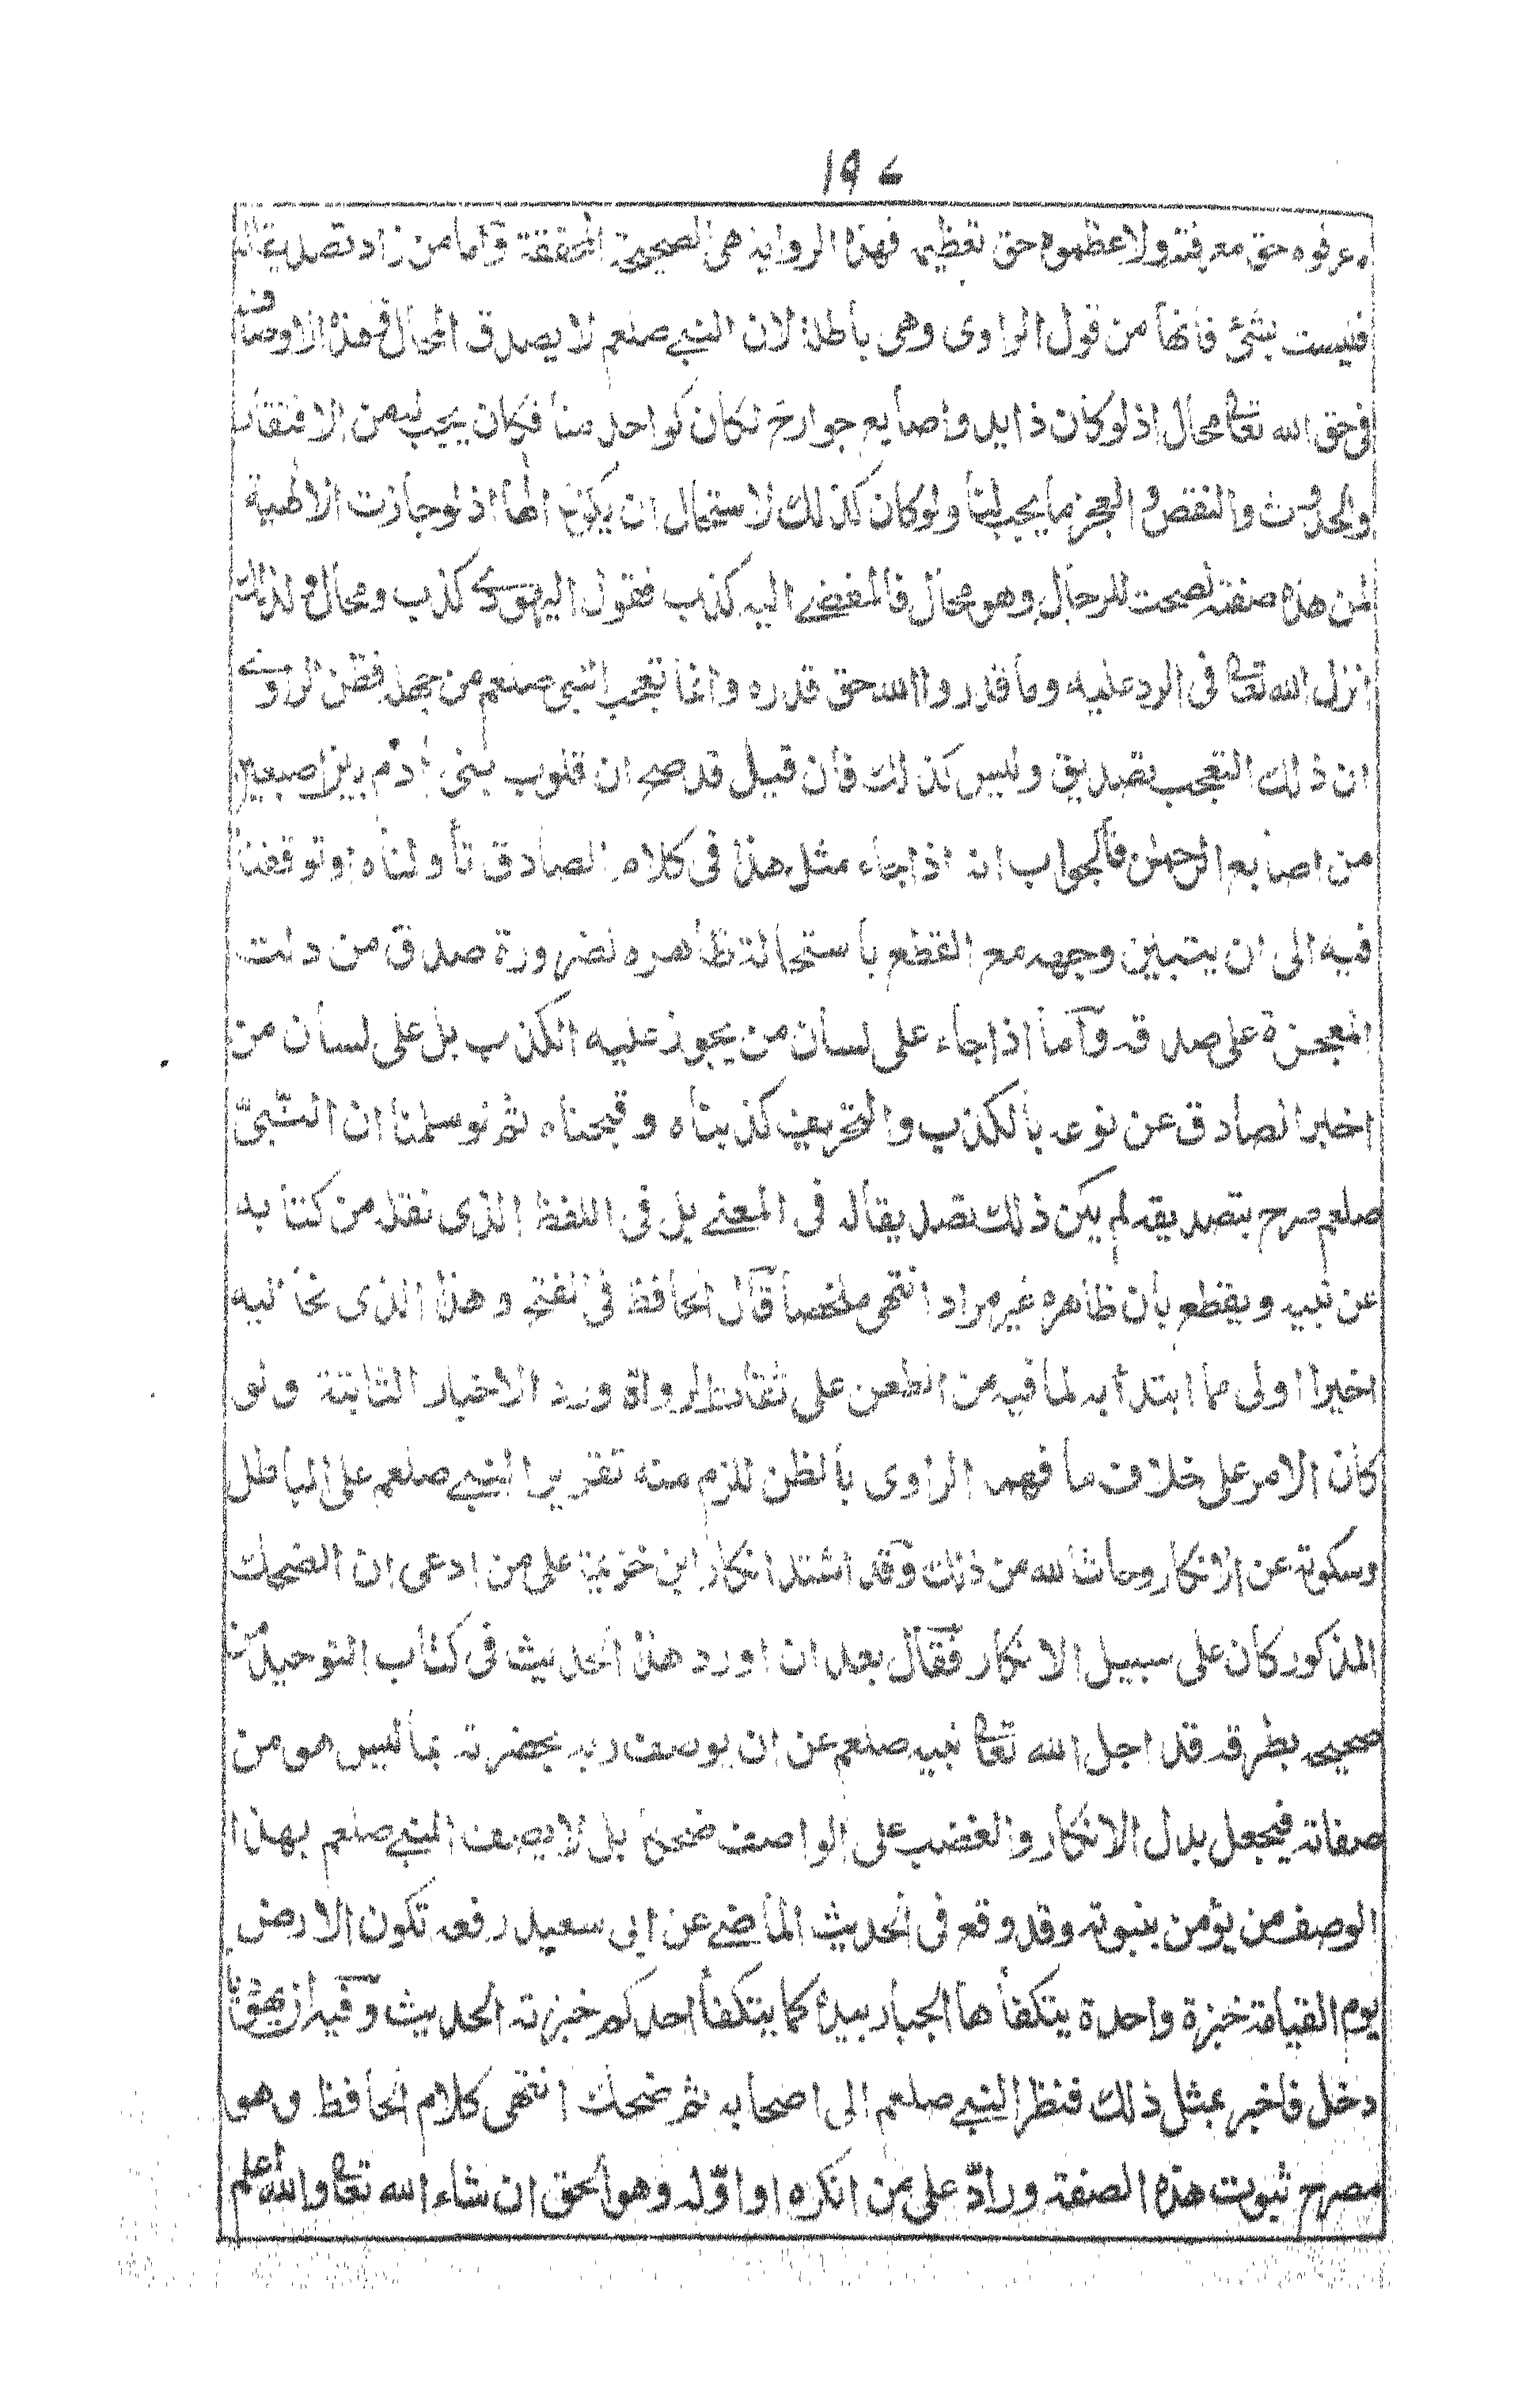 ١٩٧
ما عرفوه حق معرفته ولا عظموه حق تعظيمه فهذه الرواية هى الصحيحة المحققة وآما من زاد تصديقا له
فليست بشئ فانها من قول الراوى وهى باطلة لان النبے صلعم لا يصدق المحال وهذه الاوصاف
فى حق الله تعالى محال اذ لو كان ذا يد واصابع جوارح لكان كواحد منا فكان يجب له من الافتقار
والحدوث والنقص والعجز ما يجب لنا ولو كان كذلك لاستحال ان يكون الها اذ لو جازت الالهية
لمن هذه صفته لصحت للدجال وهو محال فالمفضے اليه كذب فقول اليهودے كذب ومحال ولذلك
انزل الله تعالى فى الرد عليه وما قدروا الله حق قدره وانما تعجب النبى صلعم من جهله فظن الراوے
ان ذلك التعجب تصديق وليس كذلك فان قيل قد صح ان قلوب بنى آدم بين اصبعين
من اصابع الرحمن فالجواب انه اذا جاء مثل هذا فى كلام الصادق تأولناه او توقفنا
فيه الى ان يتبين وجهه مع القطع باستحالة ظاهره لضرورة صدق من دلت
المعجزة على صدقه وآما اذا جاء على لسان من يجوز عليه الكذب بل على لسان من
اخبر الصادق عن نوعه بالكذب والتحريف كذبناه وقبحناه ثم لو سلمنا ان النّبىّ
صلعم صرح بتصديقه لم يكن ذلك تصديقا له فى المعنے بل فى اللفظ الذى نقله من كتابه
عن نبيه ويقطع بأن ظاهره غير مراد انتهى ملخصا قآل الحافظ فى الفتح وهذا الذى نحا اليه
اخيرا اولى مما ابتدأ به لما فيه من الطعن على ثقات الرواة ورد الاخبار الثابتة ولو
كان الامر على خلاف ما فهمه الراوى بالظن للزم منه تقرير النبے صلعم على الباطل
وسكوته عن الانكار وحاشا لله من ذلك وقد اشتد انكار ابن خزيمة على من ادعى ان الضحك
المذكور كان على سبيل الانكار فقال بعد ان اورد هذا الحديث فى كتاب التوحيد من
صحيحه بطرقه قد اجل الله تعالى نبيه صلعم عن ان يوصف ربه بحضرته بما ليس هو من
صفاته فيجعل بدل الانكار والغضب على الواصف ضحكا بل لا يصف النبے صلعم بهذا
الوصف من يؤمن بنبوته وقد وقع فى الحديث الماضے عن ابى سعيد رفعه تكون الارض
يوم القيامة خبزة واحدة يتكفأها الجبار بيده كما يتكفأ احدكم خبزته الحديث وفيه ان يهوديا
دخل فاخبر بمثل ذلك فنظر النبے صلعم الى اصحابه ثم ضحك انتهى كلام الحافظ وهو
مصرح ثبوت هذه الصفة ورادّ على من انكره او اوّله وهو الحق ان شاء الله تعالى والله اعلم